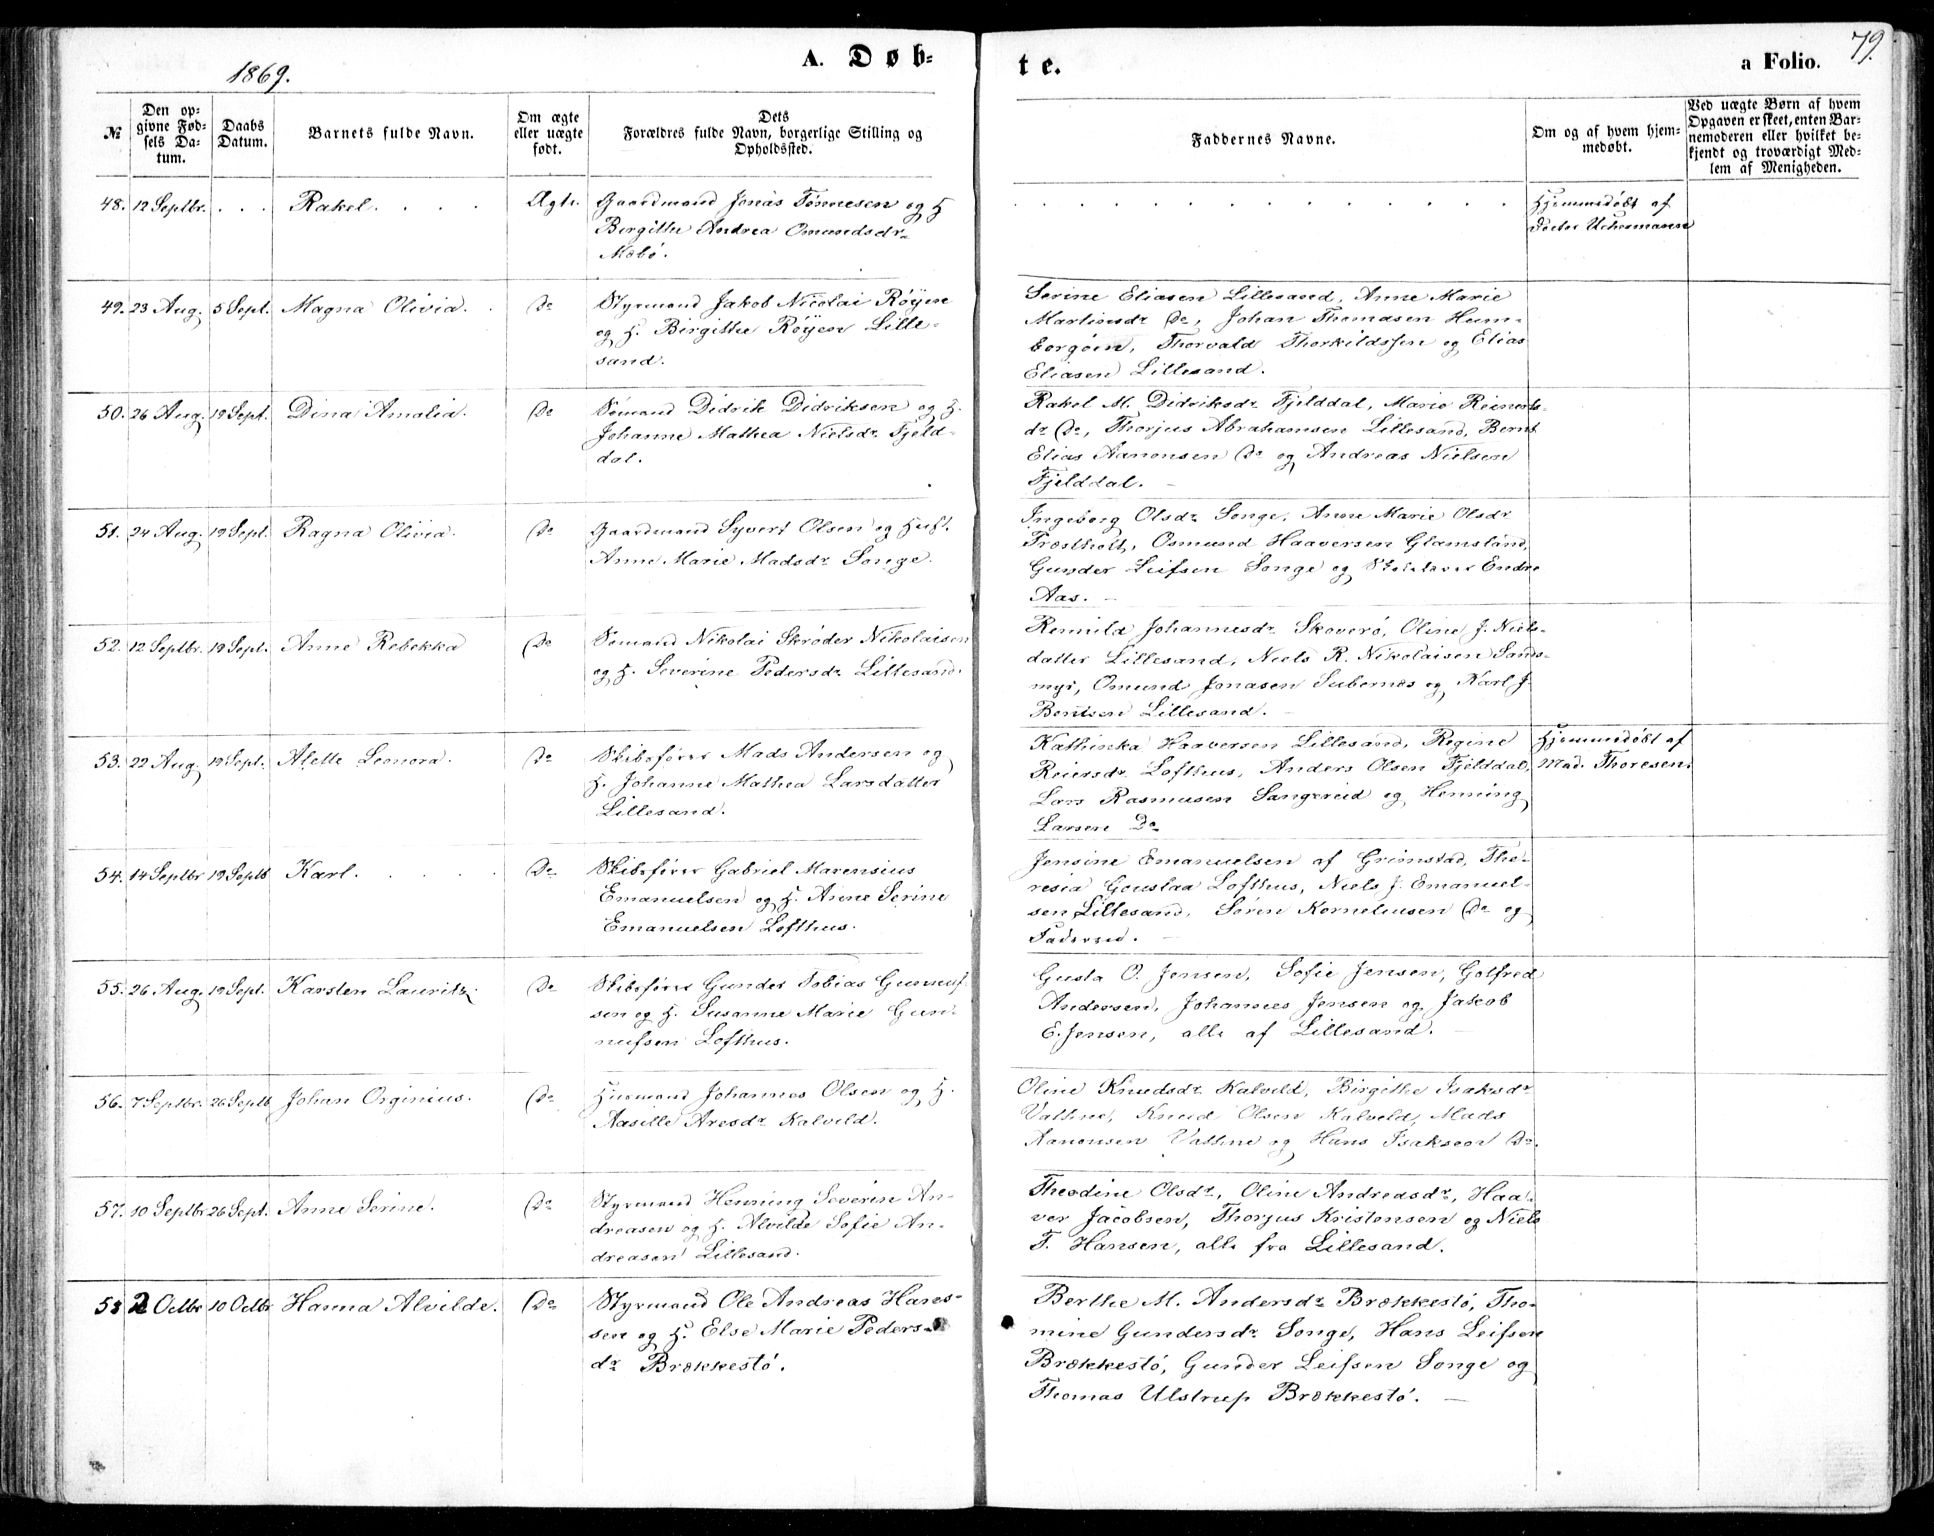 1869.
A. Døb-
te.
a Folio.
79.
№
Den op-
givne Fød-
sels Da-
tum.
Daabs
Datum.
Barnets fulde Navn.
Om ægte
eller uægte
født.
Dets
Forældres fulde Navn, borgerlige Stilling og
Opholdssted.
Faddernes Navne.
Om og af hvem hjem-
medøbt.
Ved uægte Børn af hvem
Opgaven er skeet, enten Bar-
nemoderen eller hvilket be-
kjendt og troværdigt Med-
lem af Menigheden.
48. 12 Septbr. . . . Rakel. . . . Ægte. Gaardmand Jonas Tønnesen og H
Birgithe Andrea Omundsdr
Møbø.
Hjemmedøbt af
Doctor Uchermann
49. 23 Aug. 5 Sept. Magna Olivia. Do Styrmand Jakob Nicolai Røyen
og H. Birgithe Røyen Lille-
sand.
Serine Eliasen Lillesand, Anne Marie
Martinsdr Do, Johan Thomasen Hum-
borgøen, Thorvald Thorkildsen og Elias
Eliasen Lillesand.
50. 26 Aug. 19 Sept. Dina Amalia. Do Sømand Didrik Didriksen og H.
Johanne Mathea Nielsdr Fjeld-
dal.
Rakel M. Didriksdr Fjelddal, Marie Reinerts-
dr Do, Thorjus Abrahamsen Lillesand, Bernt
Elias Aanonsen Do og Andreas Nielsen
Fjelddal.
51. 24 Aug. 19 Sept. Ragna Olivia. Do Gaardmand Syvert Olsen og Hust.
Anne Marie Madsdr Songe.
Ingeborg Olsdr Songe, Anne Marie Olsdr
Præstholt, Osmund Haaversen Glamsland,
Gunder Leifsen Songe og Skolelærer Endre
Aas.
52. 12 Septbr. 19 Sept. Anne Rebekka Do Sømand Nikolai Skrøder Nikolaisen
og H. Severine Pedersdr Lillesand.
Remild Johannesdr Skoverø, Oline J. Niels-
datter Lillesand, Niels R. Nikolaisen Sands-
myr, Omund Jonasen Subernes og Karl J.
Bentsen Lillesand.
53. 22 Aug. 19 Sept. Alette Leonora. Do Skibsfører Mads Andersen og
H. Johanne Mathea Larsdatter
Lillesand.
Kathinka Haaversen Lillesand, Regine
Reiersdr Lofthus, Anders Olsen Fjelddal,
Lars Rasmusen Sangereid og Henning
Larsen Do
Hjemmedøbt af
Mad. Thoresen.
54. 14 Septbr 19 Septb Karl. . . . Do Skibsfører Gabriel Marensius
Emanuelsen og H. Anne Serine
Emanuelsen Lofthus.
Jensine Emanuelsen af Grimstad, The-
resia Goustaa Lofthus, Niels J. Emanuel-
sen Lillesand, Søren Korneliusen Do og
Faderen.
55. 26 Aug. 19 Sept. Karsten Lauritz Do Skibsfører Gunder Tobias Gunnuf-
sen og H. Susanne Marie Gun-
nufsen Lofthus.
Gusta O. Jensen, Sofie Jensen, Gotfred
Andersen, Johannes Jensen og Jakob
E. Jensen, alle af Lillesand.
56. 7 Septbr. 26 Septb Johan Orginius. Do Husmand Johannes Olsen og H.
Aasille Aresdr Kalveld.
Oline Knudsdr Kalveld, Birgithe Isaksdr
Vatne, Knud Olsen Kalveld, Mads
Aanonsen Vatne og Hans Isaksen Do.
57. 10 Septbr 26 Sept. Anne Serine. Do Styrmand Henning Severin An-
dreasen og H. Alvilde Sofie An-
dreasen Lillesand.
Theodine Olsdr, Oline Andreasdr, Haa-
ver Jacobsen, Thorjus Kristensen og Niels
T. Hansen, alle fra Lillesand.
58 2 Octbr 10 Octbr Hanna Alvilde. Do Styrmand Ole Andreas Hans-
sen og H. Else Marie Peders-
dr Brækkestø.
Berthe M. Andersdr Brækkestø, Tho-
mine Gundersdr Songe, Hans Leifsen
Brækkestø, Gunder Leifsen Songe og
Thomas Ulstrup Brækkestø.